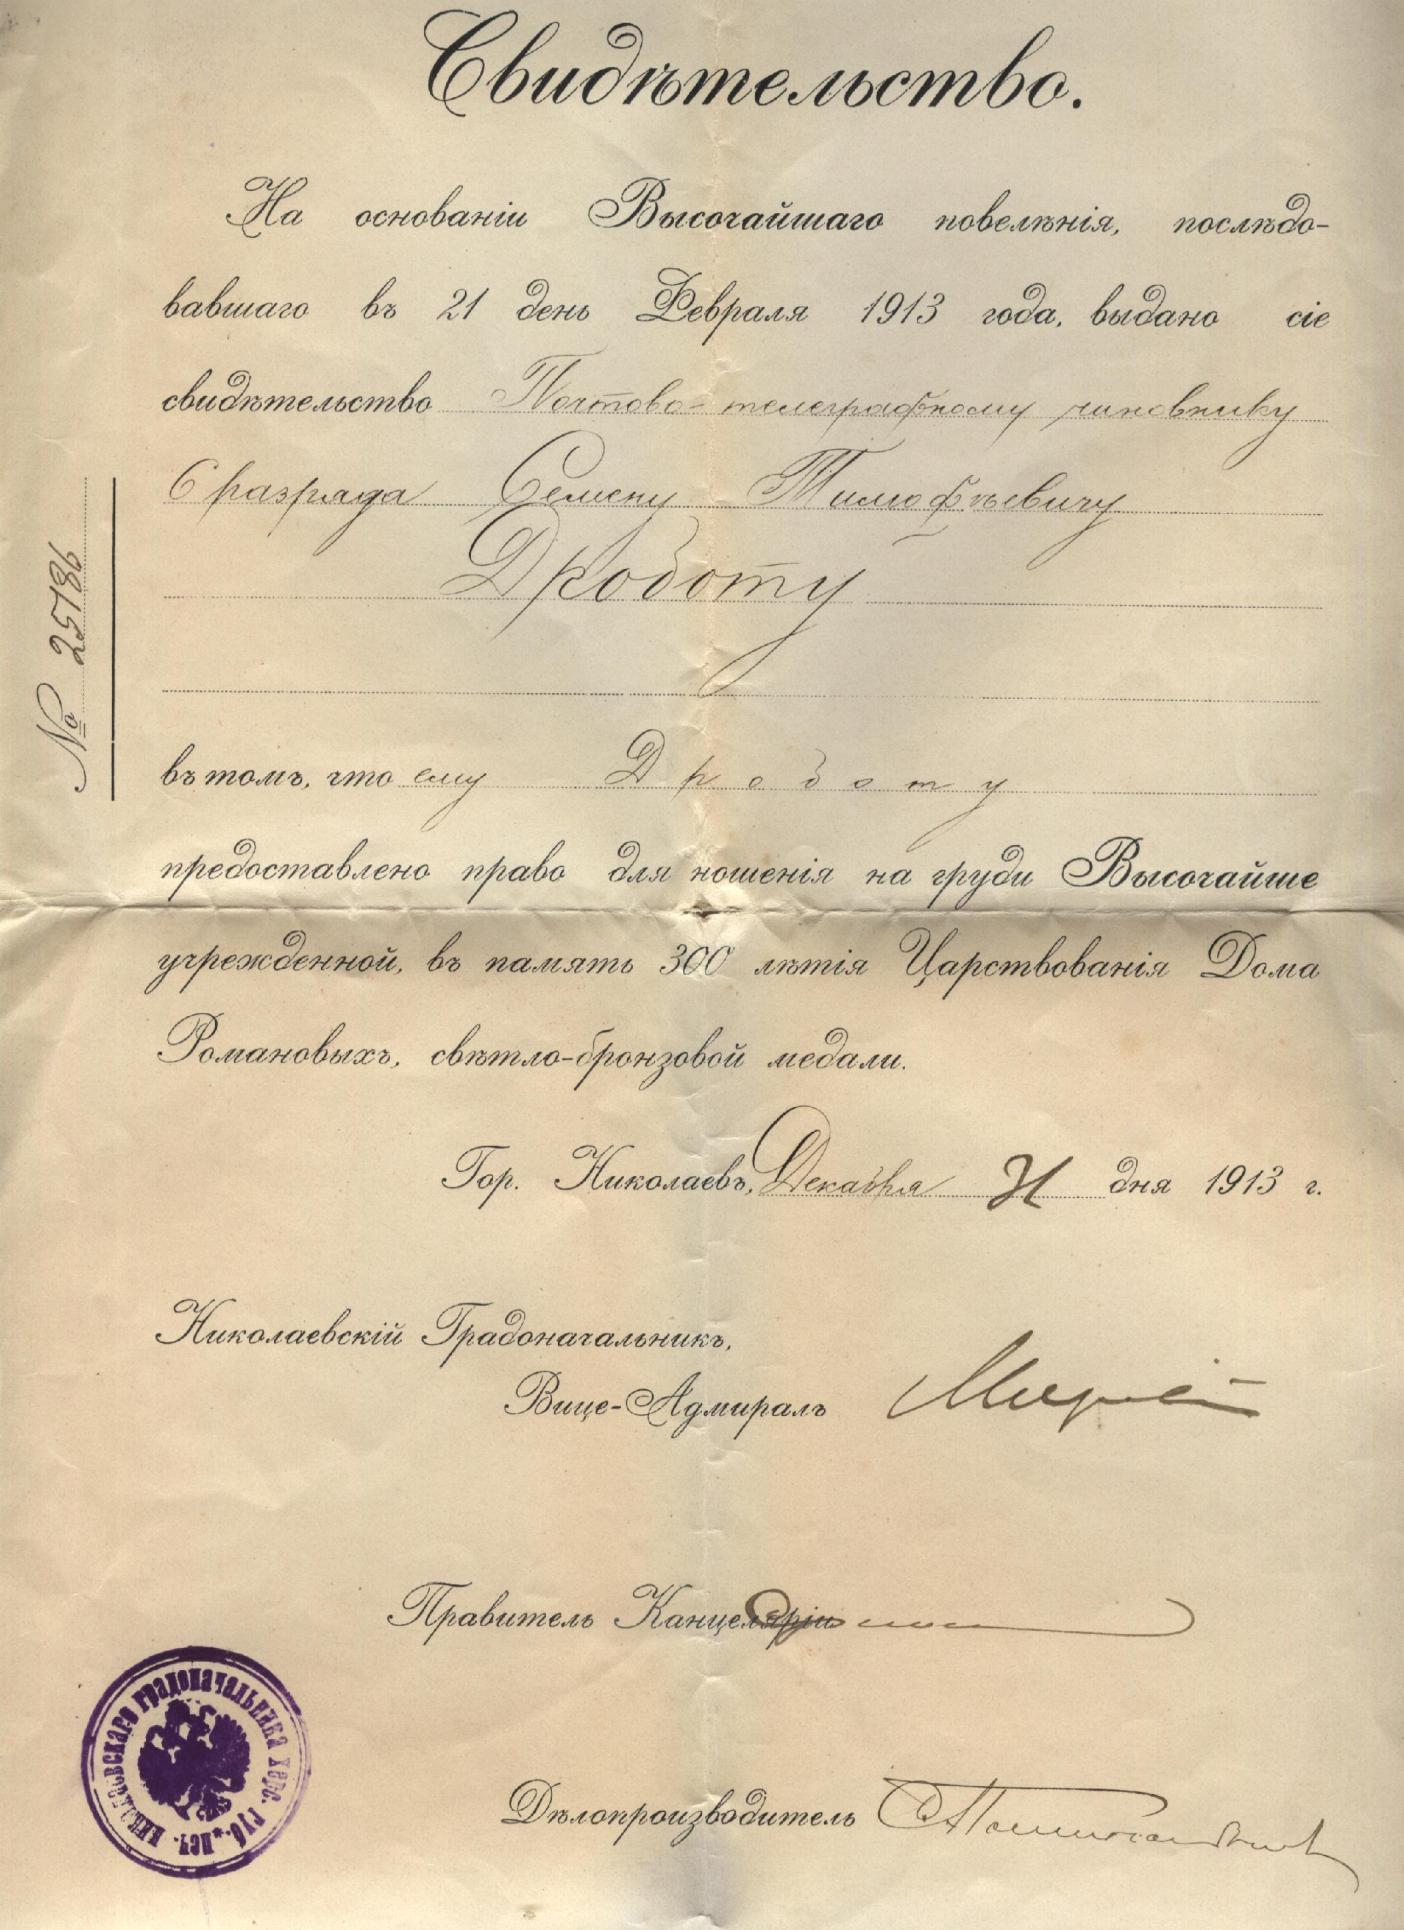 Свидѣтельство.
На основаніи Высочайшаго повелѣнія, послѣдо-
вавшаго въ 21 день Февраля 1913 года, выдано сіе
свидѣтельство Почтово-телеграфному чиновнику
6 разряда Семену Тимофѣевичу
Дроботу
№ 25786
въ томъ, что ему Дроботу
предоставлено право для ношенія на груди Высочайше
учрежденной, въ память 300 лѣтія Царствованія Дома
Романовыхъ, свѣтло-бронзовой медали.
Гор. Николаевъ, Декабря 21 дня 1913 г.
Николаевскій Градоначальникъ,
Вице-Адмиралъ
Правитель Канцеляріи
печ. николаевскаго градоначальника херс. губ.
Дѣлопроизводитель